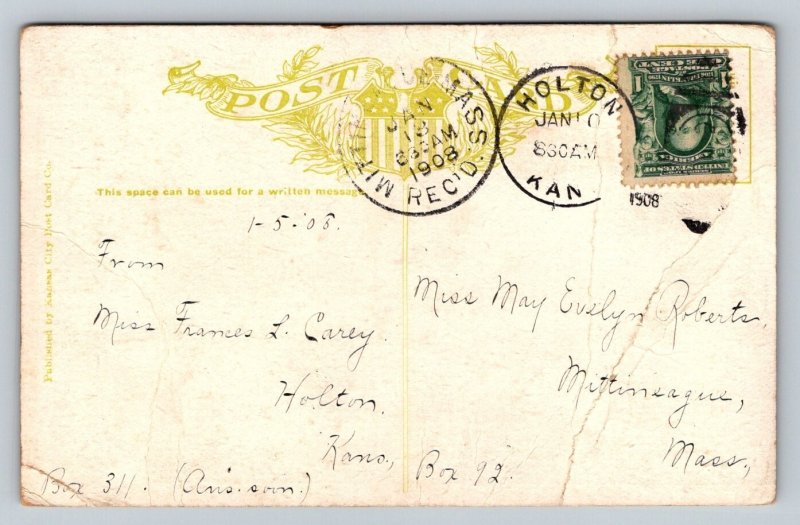 POST CARD
This space can be used for a written message
Published by Kansas City Post Card Co.
MASS.
JAN
13
830AM
1908
REC'D.
HOLTON
JAN 10
830AM
KAN
1908
UNITED STATES OF
ONE CENT
1-5-08.
From
Miss Frances L. Carey.
Holton,
Kans.,
Box 311. (Ans. soon.)
Miss May Evelyn Roberts,
Mittineague,
Mass.,
Box 92.